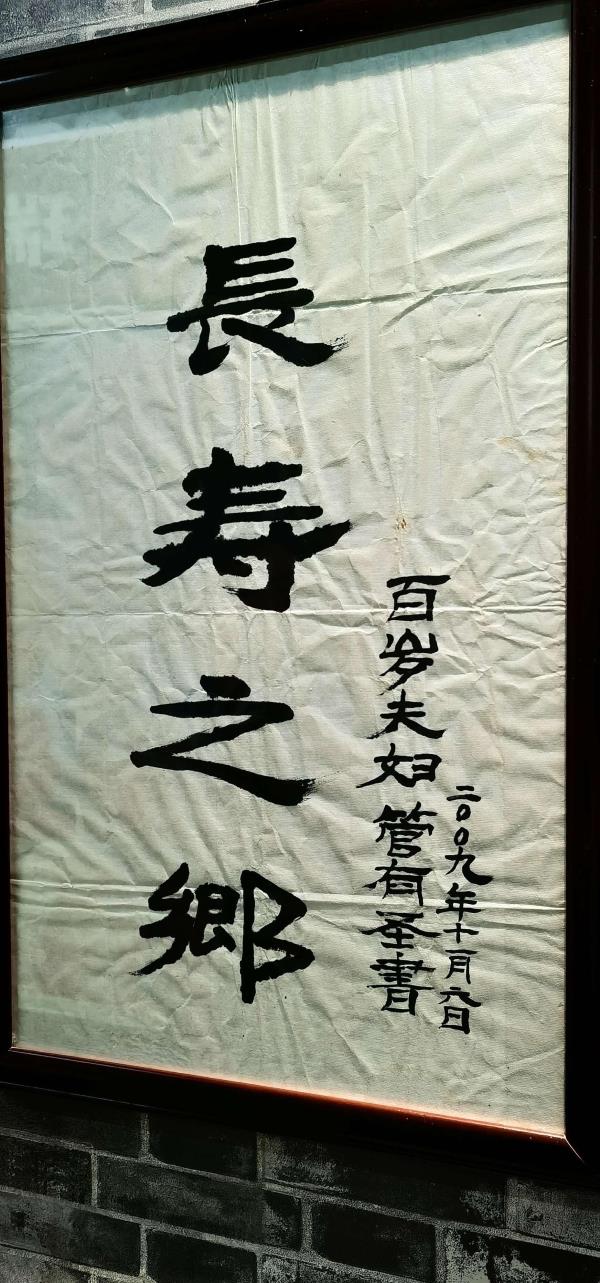 長寿之鄉
百岁夫妇管有圣書
二〇〇九年十一月六日